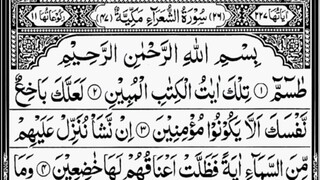 اٰیَاتُهَا ۲۲۷ (۲۶) سُوْرَةُ الشُّعَرَآءِ مَكِّیَّةٌ (۴۷) رُكُوْعَاتُهَا ۱۱
بِسْمِ اللّٰهِ الرَّحْمٰنِ الرَّحِیْمِ
طٰسٓمّٓ ﴿۱﴾ تِلْكَ اٰیٰتُ الْكِتٰبِ الْمُبِیْنِ ﴿۲﴾ لَعَلَّكَ بَاخِعٌ
نَّفْسَكَ اَلَّا یَكُوْنُوْا مُؤْمِنِیْنَ ﴿۳﴾ اِنْ نَّشَاْ نُنَزِّلْ عَلَیْهِمْ
مِّنَ السَّمَآءِ اٰیَةً فَظَلَّتْ اَعْنَاقُهُمْ لَهَا خٰضِعِیْنَ ﴿۴﴾ وَمَا